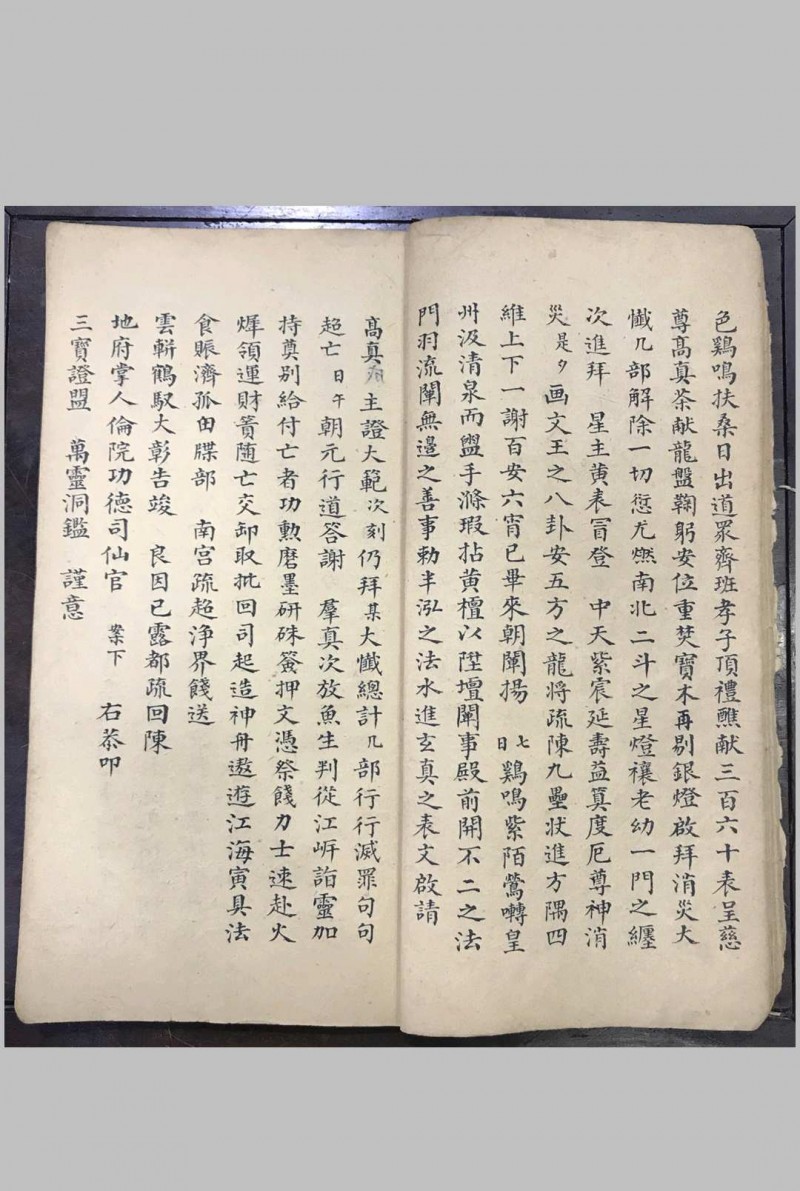 色鷄鳴扶桑日出道眾齊班孝子頂禮醮献三百六十表呈慈
尊髙真茶献龍盤鞠躬安位重焚寶木再剔銀燈啟拜消災大
懺几部解除一切愆尤燃南北二斗之星燈禳老幼一門之纏
次進拜　星主黄表冐登　中天紫宸延壽益筭度厄尊神消
災是夕画文王之八卦安五方之龍將疏陳九壘状進方隅四
維上下一謝百安六宵已畢來朝闡揚　七日鷄鳴紫陌鶯囀皇
州汲清泉而盥手滌瑕拈黄檀以陞壇闡事殿前開不二之法
門羽流闡無邊之善事勅半泓之法水進玄真之表文啟請
髙真主證大範次刻仍拜某大懺總計几部行行滅罪句句
超亡日午朝元行道答謝　羣真次放魚生判從江岍詣靈加
持奠别給付亡者功勲磨墨研硃簽押文憑祭餞力士速赴火
墀領運財簣随亡交卸取批回司起造神舟遨遊江海寅具法
食賑濟孤由牒部　南宫疏超浄界餞送
雲軿鶴馭大彰告竣　良因已露都疏回陳
地府掌人倫院功德司仙官　案下　右恭叩
三寶證盟　萬靈洞鑑　謹意